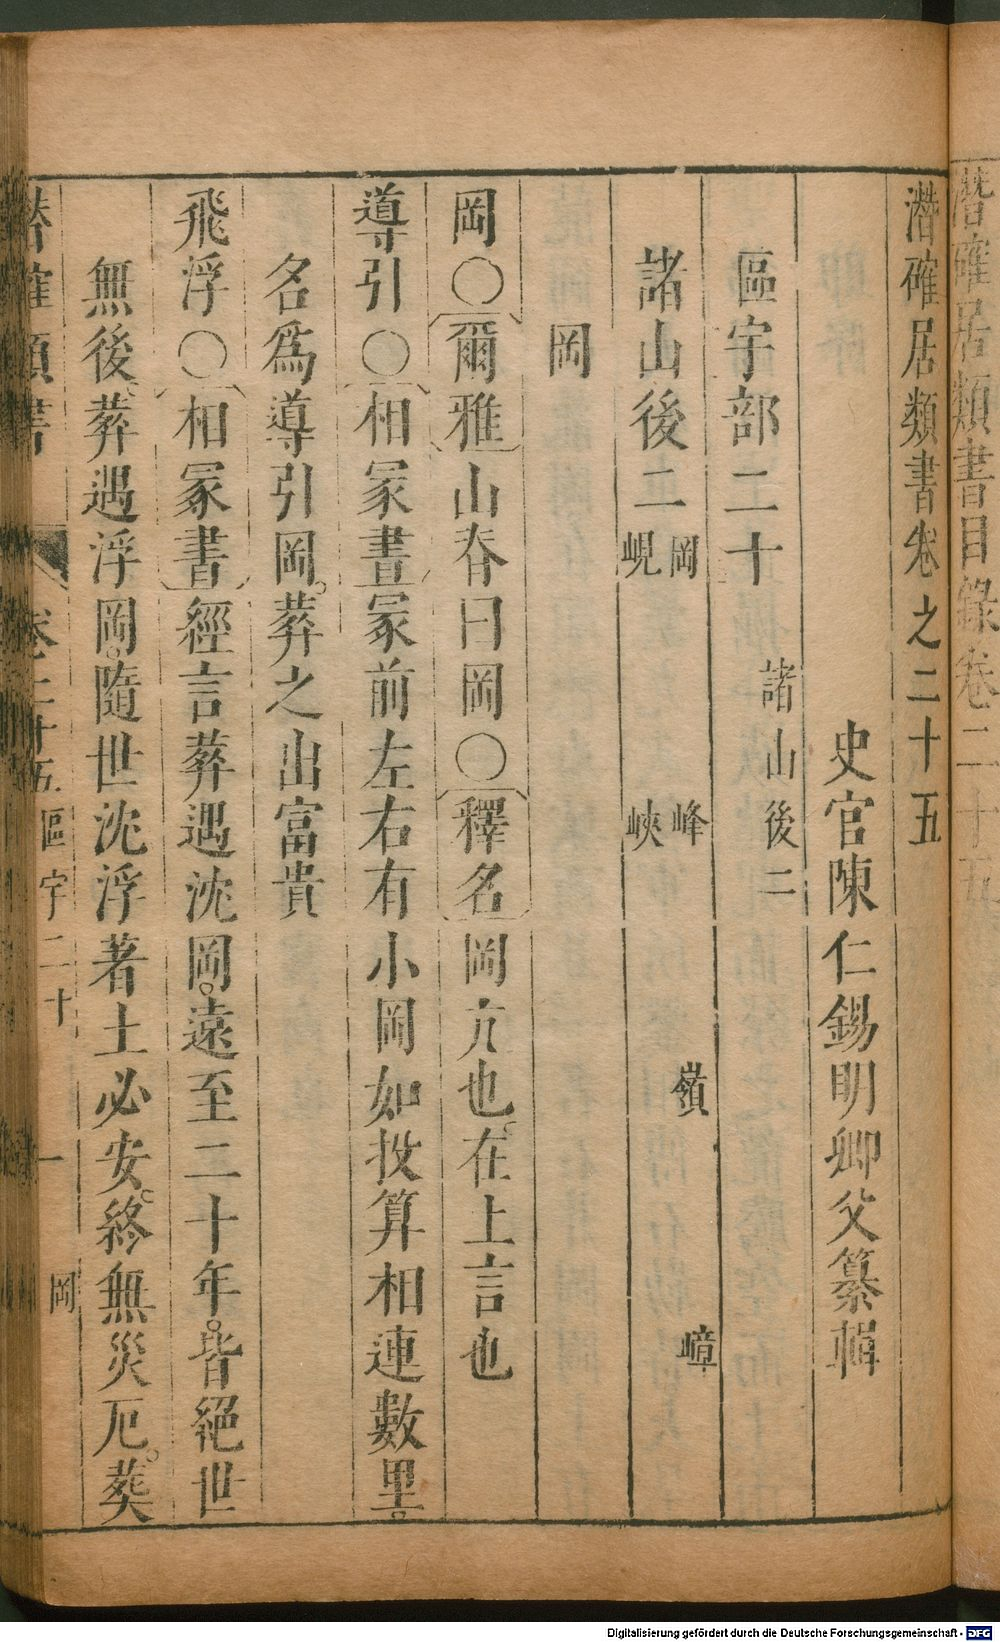 潛確居類書目錄卷二十五
潛確居類書卷之二十五
史官陳仁錫明卿父纂輯
區宇部二十 諸山後二
諸山後二 岡 峰 嶺 嶂
峴 峽
岡
岡〇爾雅山脊曰岡〇釋名岡亢也在上言也
導引〇相冢書冢前左右有小岡如投算相連數里
名爲導引岡葬之出富貴
飛浮〇相冢書經言葬遇沈岡遠至二十年皆絕世
無後葬遇浮岡隨世沈浮著土必安終無災厄葬
潛確類書 卷二十五 區宇二十 一 岡
Digitalisierung gefördert durch die Deutsche Forschungsgemeinschaft - DFG